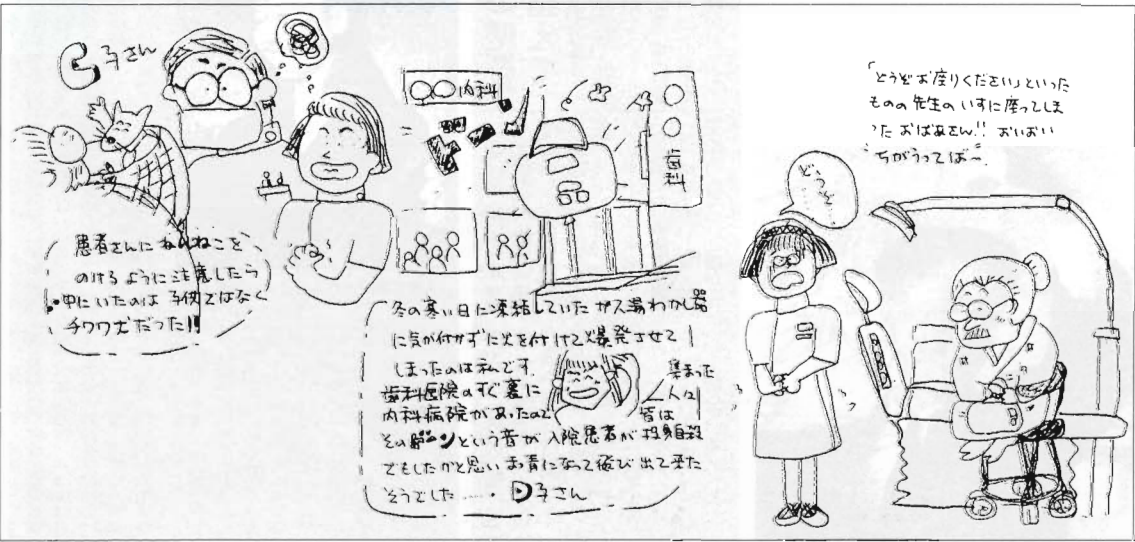 C子さん
患者さんにねんねこを
のけるように注意したら
中にいたのは子供ではなく
チワワ犬だった!!
○○内科
○○歯科
冬の寒い日に凍結していたガス湯わかし器
に気が付かずに火を付けて爆発させて
しまったのは私です.
歯科医院のすぐ裏に
内科病院があったので
集まった
人々
皆は
そのボーンという音が入院患者が投身自殺
でもしたかと思いお青になって飛び出て来た
そうでした……. D子さん
「どうぞお座りください」といった
ものの先生のいすに座ってしま
ったおばあさん!! おいおい
ちがうってば〜.
どうぞ